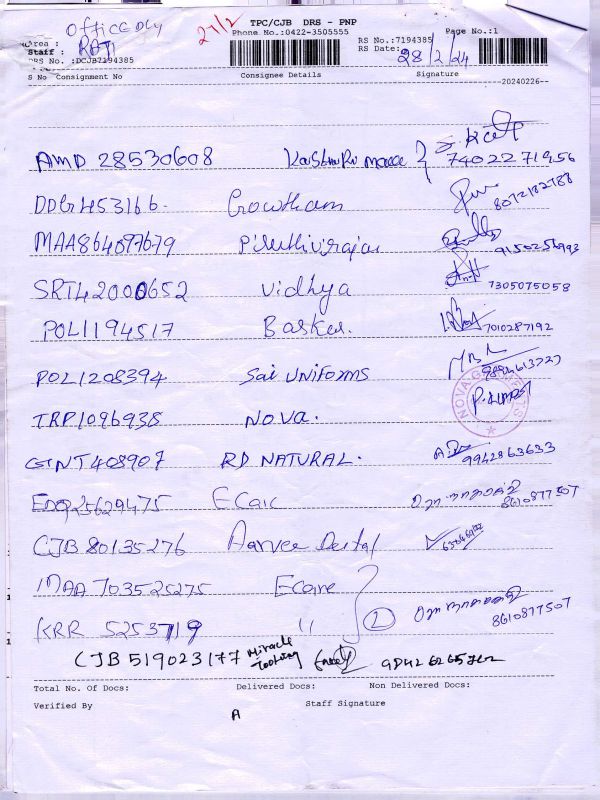 TPC/CJB DRS - PNP
Office Dly 27/2 Phone No.:0422-3505555 Page No.:1
Area : RS No.:7194385
Staff : RS Date: 28/2/24
DRS No. :DCJB7194385
S No Consignment No Consignee Details Signature
20240226
AMD 28530608 7402271956
DDG 453166 Gowtham 8072182788
MAA864097679 Pirithivirajan 9150256993
SRT42000652 Vidhya 7305075058
POL1194517 Basker. 7010287192
POL1208394 Sai UNIFORMS 9894613727
TRP1096938 NOVA.
GTNT408907 RD NATURAL. 9942863633
EDQ25629475 ECare 8610877507
CJB 80135276 Aarvee Dental
MAA 703525275 Ecare
KRR 5253719 " 2 8610877507
CJB 519023177 Miracle Tooling
Total No. Of Docs: Delivered Docs: Non Delivered Docs:
Verified By Staff Signature
A